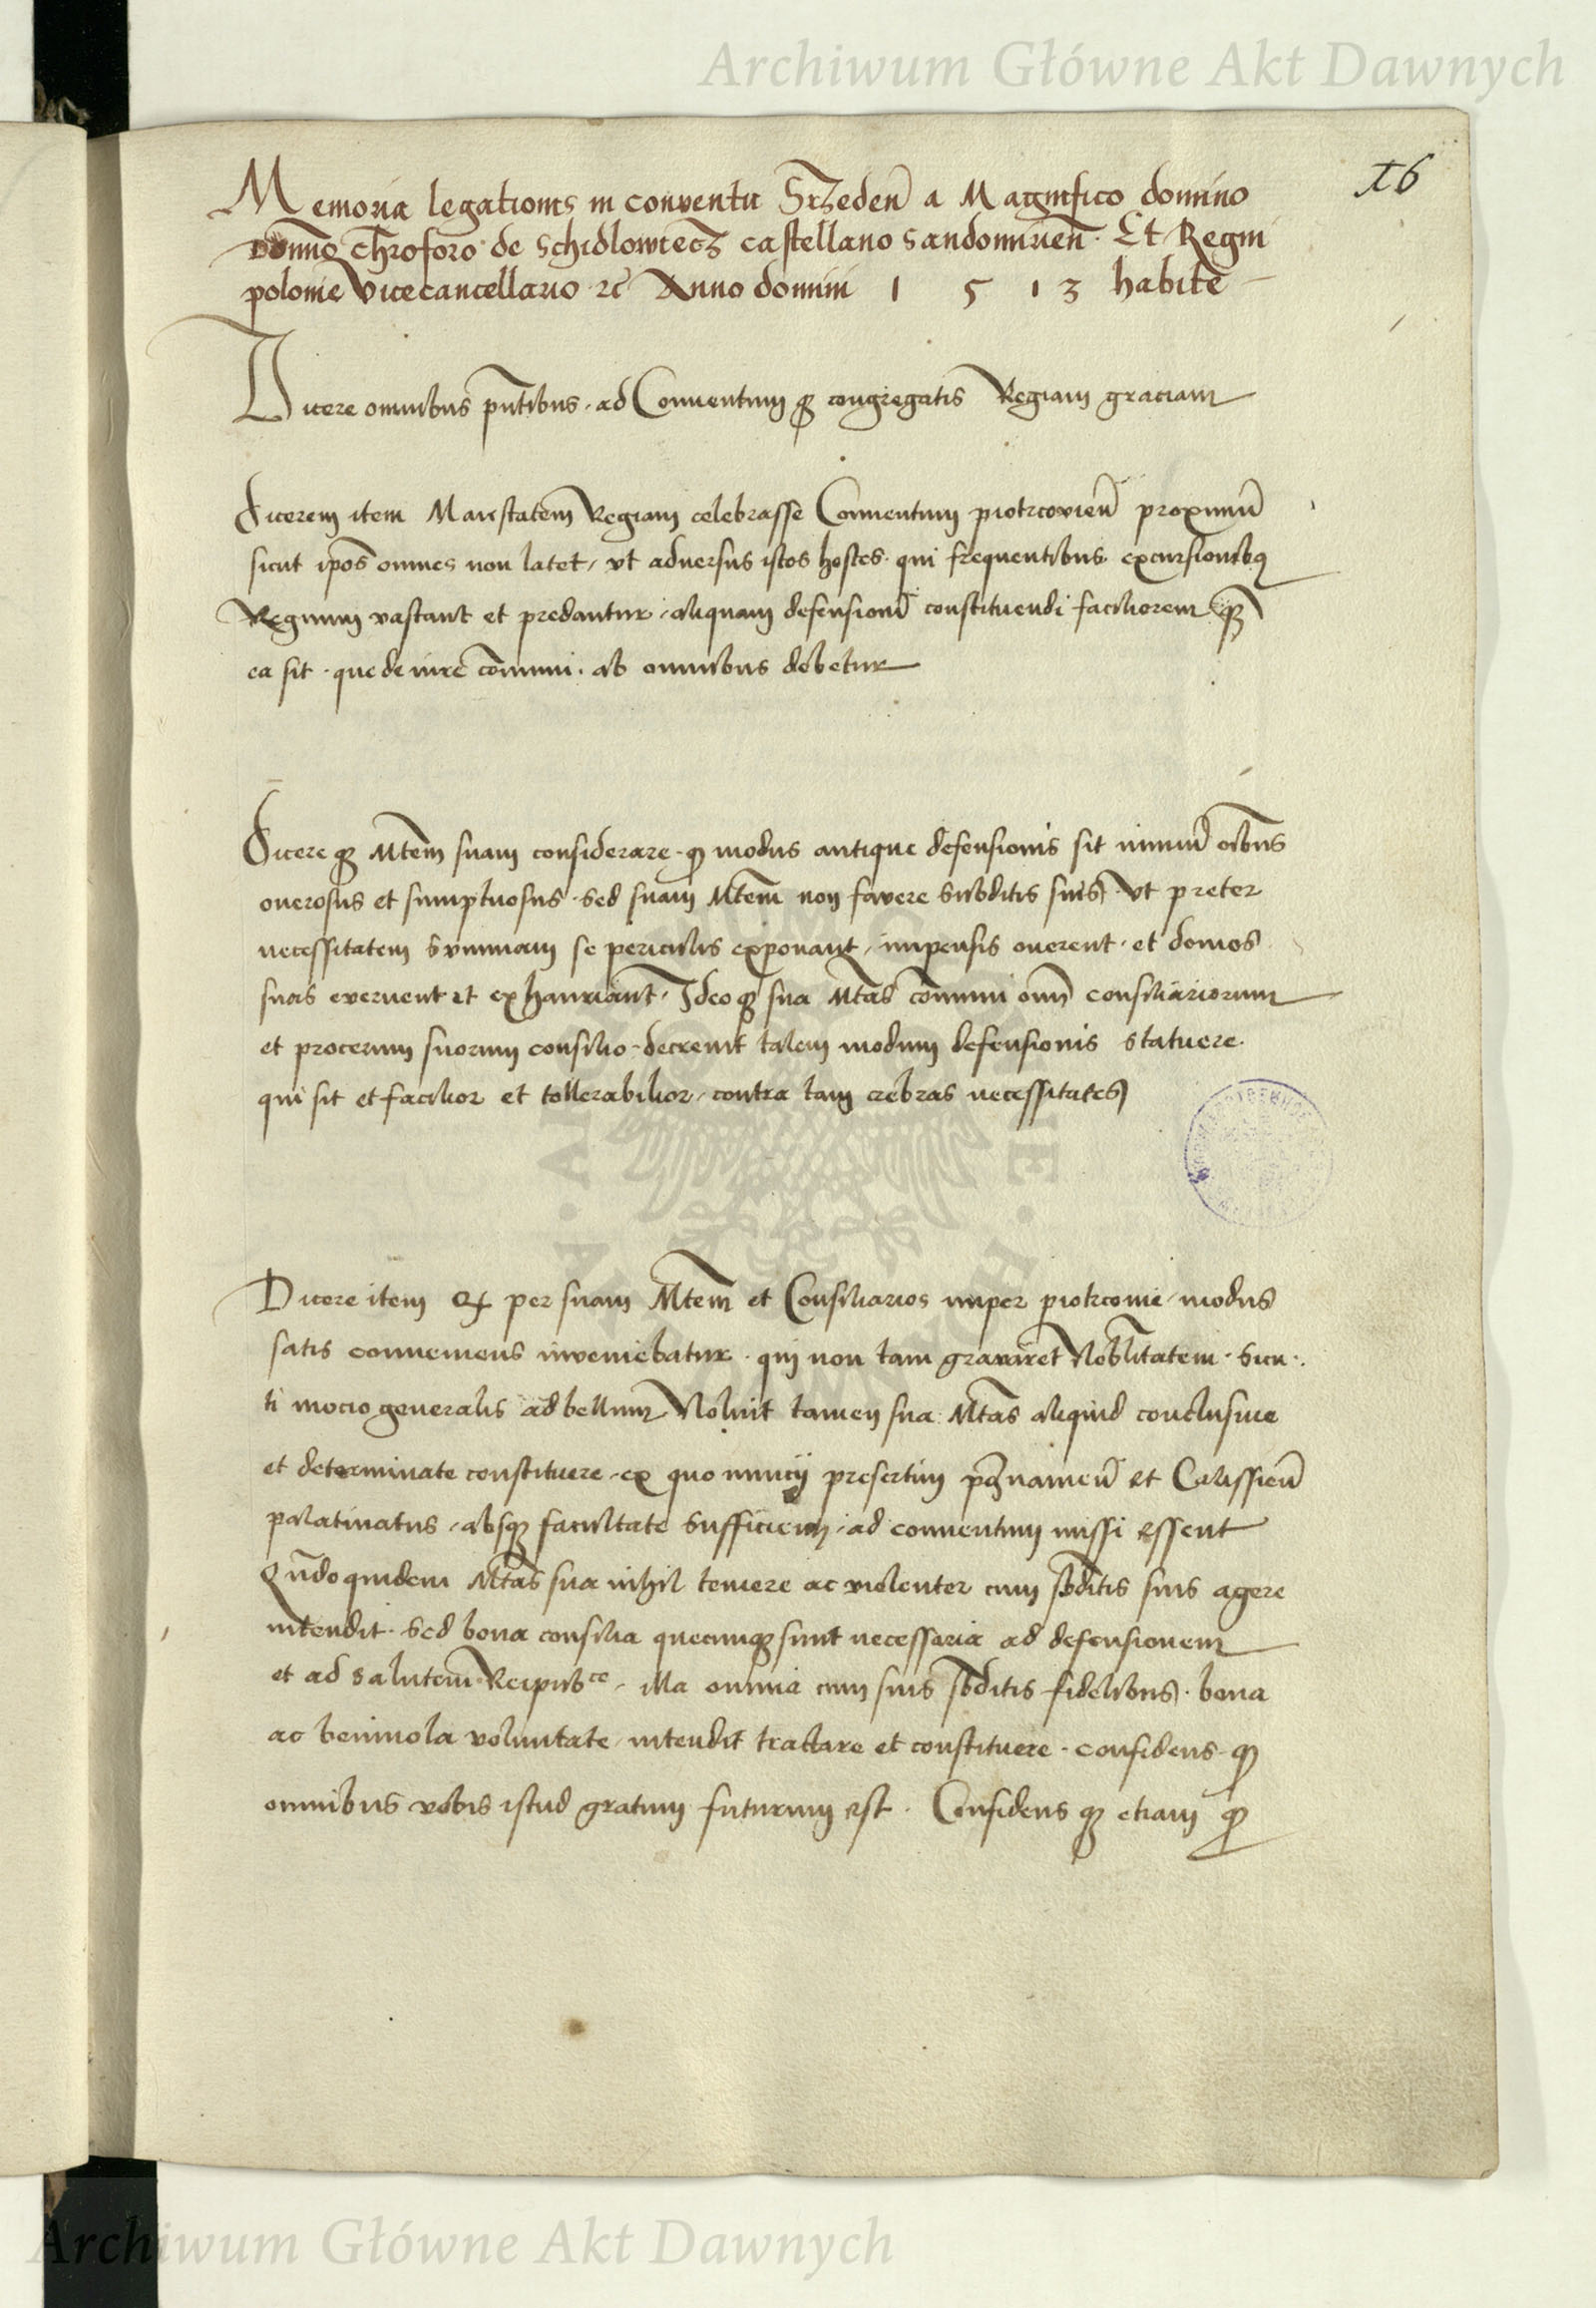 Archiwum Główne Akt Dawnych
16
Memoria legationis in conventu Srzeden̄ a Magnifico domino
domno Chr̄oforo de Schidlowiecz castellano Sandomirien̄. Et Regni
polonie Vicecancellario ꝛc̄ Anno domini 1 5 1 3 habite
Dicere omnibus pn̄tibus. ad Conventum qꝫ congregatis Regiam graciam
Dicerem item Maiestatem Regiam celebrasse Conventum piotrcovien̄ proximū
sicut ip̄os omnes non latet, vt adversus istos hostes. qui frequentibus excursionibꝰ
Regnum vastant et predantur, aliquam defensionē constituendi faciliorem
ea sit. que de iure cōmuni. ab omnibus debetur
Dicere qꝫ Mtem̄ suam considerare. ꝙ modus antique defensionis sit nimiū oībus
onerosus et sumptuosus. Sed suam Mtem̄ non favere Subditis suis. Vt preter
necessitatem Summam se periculis exponant, impensis onerent. et domos
suas evervent et exhauriant. Ideoqꝫ sua Mtas̄ cōmuni om̄ consiliariorum
et procerum suorum consilio. decrevit talem modum defensionis statuere.
qui sit et facilior et tollerabilior, contra tam crebras necessitates
Dicere item ꝙ per suam Mtem̄ et Consiliarios nuper piotrcovie, modus
satis conveniens inveniebatur. qui non tam gravaret Nobl̄itatem. Sicu.
ti mocio generalis ad bellum Noluit tamen sua Mtas̄ aliquid conclusive
et determinate constituere, ex quo nuncij presertim poznanien̄ et Calissien̄
palatinatus, absqꝫ facultate Sufficien̄, ad conventum missi essent
Qn̄doquidem Mtas̄ sua nihil temere ac violenter cum sbd̄itis suis agere
intendit. Sed bona consilia quecunqꝫ sunt necessaria ad defensionem
et ad Salutem Reipubce, illa omnia cum suis sbd̄itis fidelibus. bona
ac benivola voluntate, intendit tractare et constituere. confidens. ꝙ
omnibus vobis istud gratum futurum est. Confidens qꝫ etiam ꝙ
Archiwum Główne Akt Dawnych